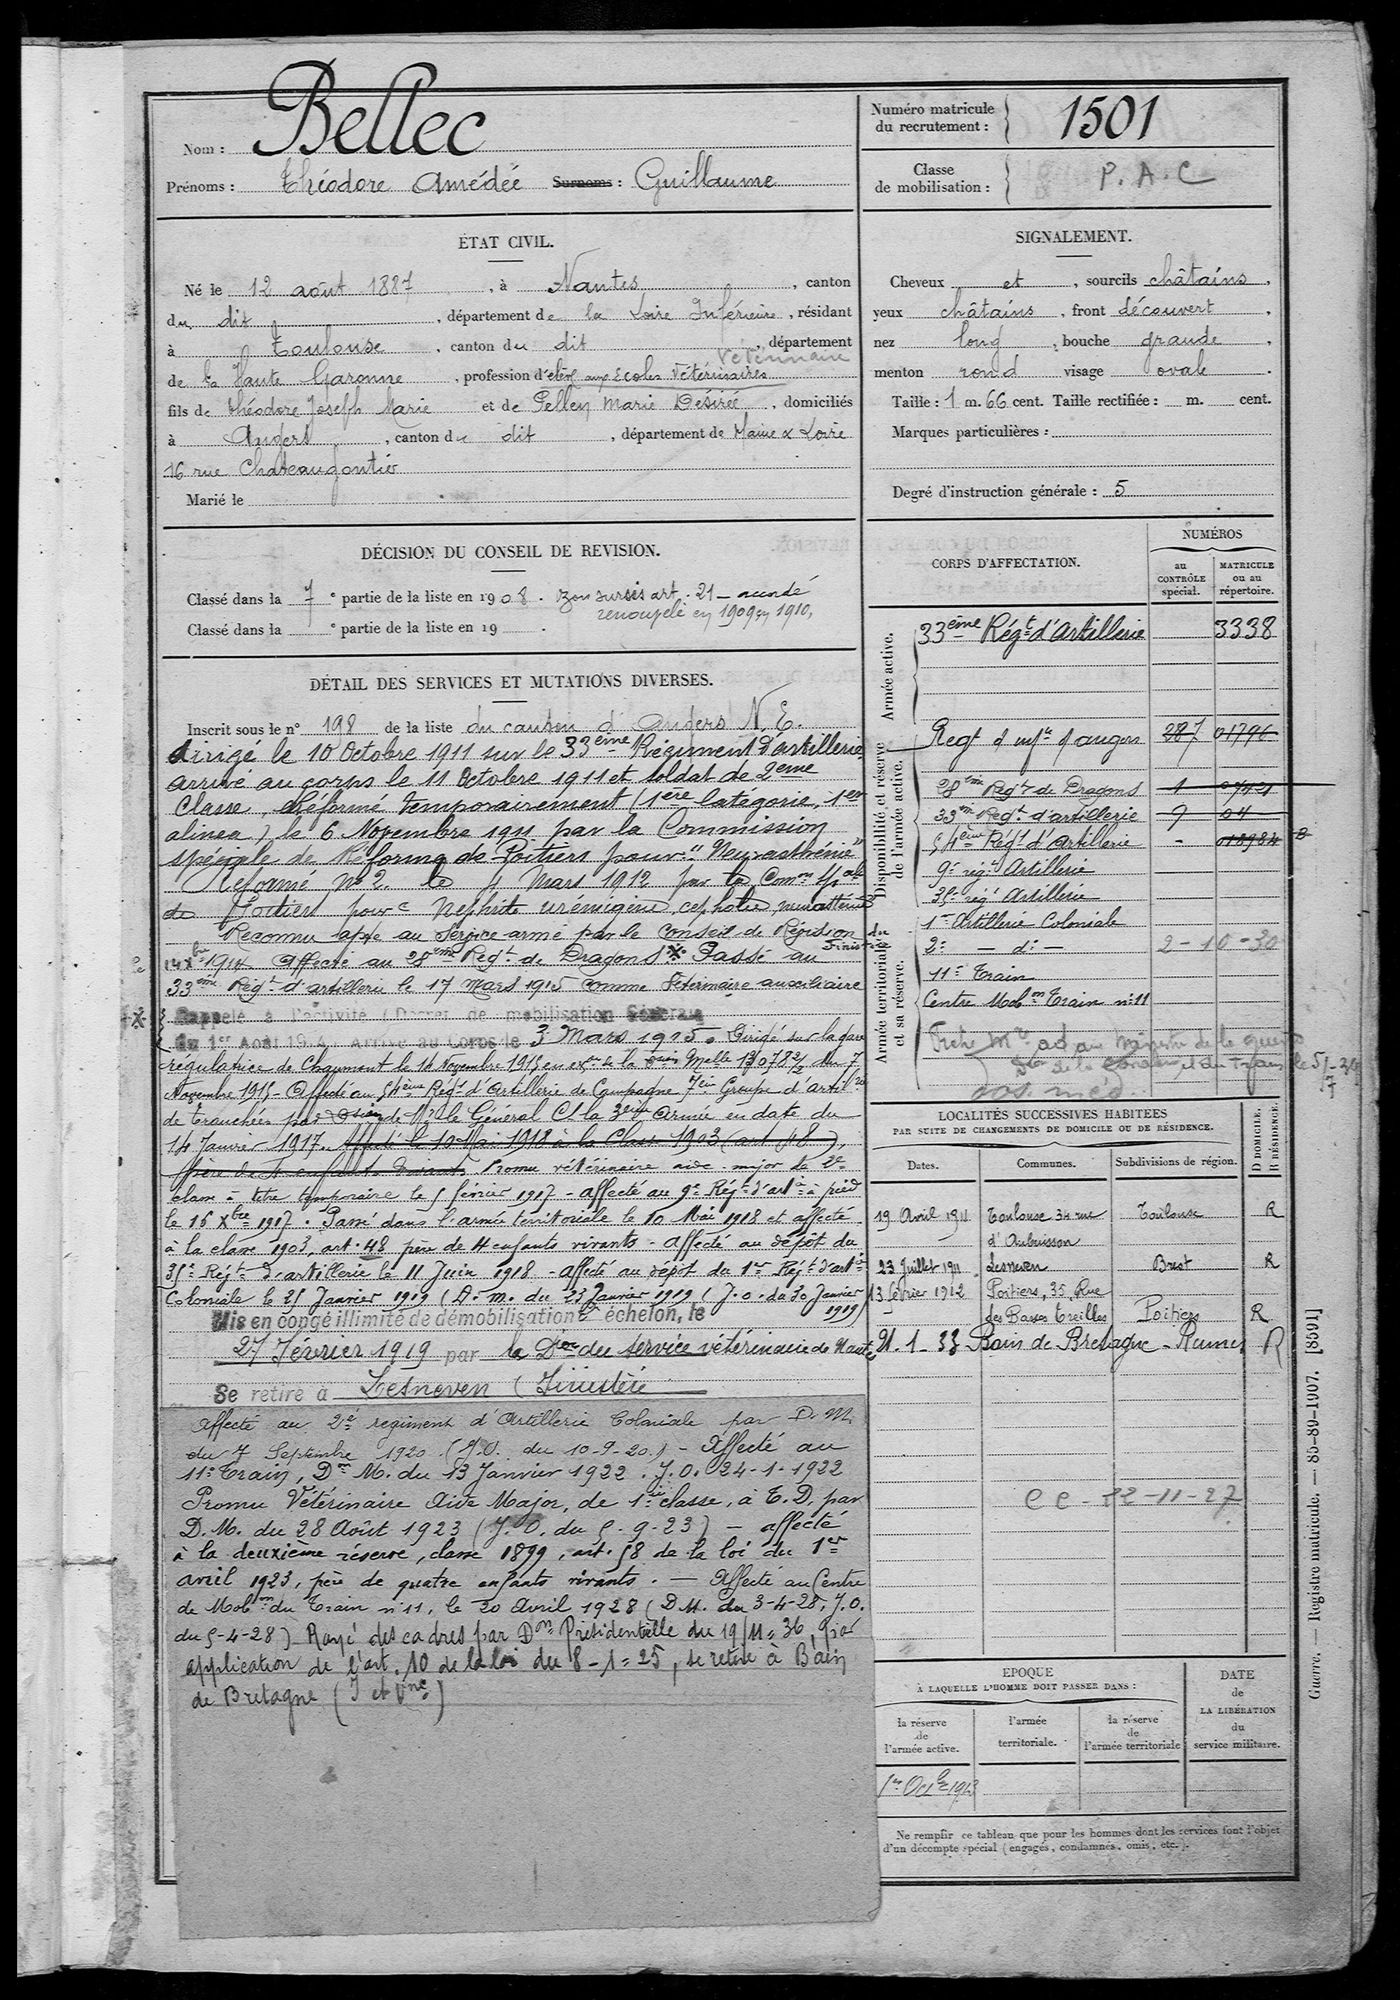 Nom : Bellec
Prénoms : Théodore Amédée Surnoms : Guillaume
Numéro matricule
du recrutement : 1501
Classe
de mobilisation : P. A. C
ÉTAT CIVIL.
Né le 12 août 1887, à Nantes, canton
du dit, département de la Loire Inférieure, résidant
à Toulouse, canton du dit, département
vétérinaire
de la Haute Garonne, profession d'élève aux Ecoles Vétérinaires
fils de Théodore Joseph Marie et de Pellen Marie Désirée, domiciliés
à Angers, canton du dit, département de Maine & Loire
16 rue Chateaugontier
Marié le
SIGNALEMENT.
Cheveux et, sourcils châtains,
yeux châtains, front découvert,
nez long, bouche grande,
menton rond visage ovale.
Taille : 1 m. 66 cent. Taille rectifiée : m. cent.
Marques particulières :
Degré d'instruction générale : 5
DÉCISION DU CONSEIL DE REVISION.
Classé dans la 7e partie de la liste en 1908. bon sursis art. 21 – accordé
renouvelé en 1909 en 1910,
Classé dans la e partie de la liste en 19 .
DÉTAIL DES SERVICES ET MUTATIONS DIVERSES.
Inscrit sous le n° 198 de la liste du canton d'Angers N. E.
dirigé le 10 Octobre 1911 sur le 33ème Régiment d'artillerie,
arrivé au corps le 11 Octobre 1911 et soldat de 2eme
Classe, Réformé temporairement (1ère Catégorie, 1er
alinéa) le 6 Novembre 1911 par la Commission
spéciale de Réforme de Poitiers pour "Neurasthénie"
Réformé n° 2 le 4 Mars 1912 par la Comon Spale
de Poitiers pour Nephrite urémigène, céphalée, neurasthénie
Reconnu apte au Service armé par le Conseil de Révision du
Finistère
14 Xbre 1914 Affecté au 28eme Régt de Dragons * Passé au
33eme Régt d'artillerie le 17 Mars 1915 comme Vétérinaire auxiliaire
* Rappelé à l'activité (Décret de mobilisation Générale
du 1er Août 1914 Arrivé au Corps le 3 Mars 1915. Dirigé sur la gare
régulatrice de Chaumont le 14 Novembre 1915 en exon de la Don Melle 13078 2/2 du 7
Novembre 1915 - Affecté au 54ème Régt d'Artillerie de Campagne 7ème Groupe d'artrie
de tranchées par Décision de Mr le Général Ct la 3ème Armée en date du
14 Janvier 1917. Affecté le 10 Mai 1918 à la Classe 1903 (art 48),
père de 4 enfants vivants. Promu vétérinaire aide-major de 2e
classe à titre temporaire le 5 février 1917 - affecté au 9e Régt d'artie à pied
le 16 Xbre 1917. Passé dans l'armée territoriale le 10 Mai 1918 et affecté
à la classe 1903, art. 48 père de 4 enfants vivants - Affecté au dépôt du
35e Régt d'artillerie le 11 Juin 1918 - affecté au dépôt du 1er Régt d'artie
Coloniale le 25 Janvier 1919 (D. m. du 23 Janvier 1919 (J. o. du 30 Janvier
1919)
Mis en congé illimité de démobilisation échelon, le
27 Février 1919 par la Don du service vétérinaire de Nantes
Se retire à Lesneven (Finistère
Affecté au 2e régiment d'Artillerie Coloniale par D. M.
du 7 Septembre 1920 (J.O. du 10-9-20.) - Affecté au
11e Train, Dn M. du 13 Janvier 1922. J.O. 24-1-1922
Promu Vétérinaire Aide Major, de 1ère classe, à T.D. par
D.M. du 28 Août 1923 (J.O. du 5-9-23) - affecté
à la deuxième réserve, classe 1899, art. 58 de la loi du 1er
avril 1923, père de quatre enfants vivants. - Affecté au Centre
de Mobon du Train n° 11, le 20 Avril 1928 (D.M. du 3-4-28, J.O.
du 5-4-28) Rayé des cadres par Don Présidentielle du 19/11-36 par
application de l'art. 10 de la loi du 8-1-25, se retire à Bain
de Bretagne (I et Vne)
CORPS D'AFFECTATION.
NUMÉROS
au
CONTRÔLE
spécial.
MATRICULE
ou au
répertoire.
Armée active.
33ème Régt d'Artillerie 3338
Disponibilité et réserve
de l'armée active.
Regt d'infie d'Angers 287 01796
28eme Régt de Dragons 1 0721
33me Régt d'artillerie 9 04
54ème Régt d'Artillerie - 018984 B
9e rég. Artillerie
35e rég Artillerie
Armée territoriale
et sa réserve.
1er Artillerie Coloniale
2e - d° - 2-10-30
11e Train
Centre Mobon Train n° 11
LOCALITÉS SUCCESSIVES HABITÉES
PAR SUITE DE CHANGEMENTS DE DOMICILE OU DE RÉSIDENCE.
Dates. Communes. Subdivisions de région. D DOMICILE. R RÉSIDENCE.
19 Avril 1911 Toulouse 34 rue Toulouse R
d'Aubuisson
23 Juillet 1911 Lesneven Brest R
13 février 1912 Poitiers, 35, Rue
des Basses Treilles Poitiers R
21-1-33 Bain de Bretagne - Rennes R
CC - 22-11-27
ÉPOQUE
À LAQUELLE L'HOMME DOIT PASSER DANS :
DATE
de
LA LIBÉRATION
du
service militaire.
la réserve
de
l'armée active.
l'armée
territoriale.
la réserve
de
l'armée territoriale
1er Octbre 1913
Ne remplir ce tableau que pour les hommes dont les services font l'objet
d'un décompte spécial (engagés, condamnés, omis, etc.).
Guerre. — Registre matricule. — 85-89-1907. [8591]